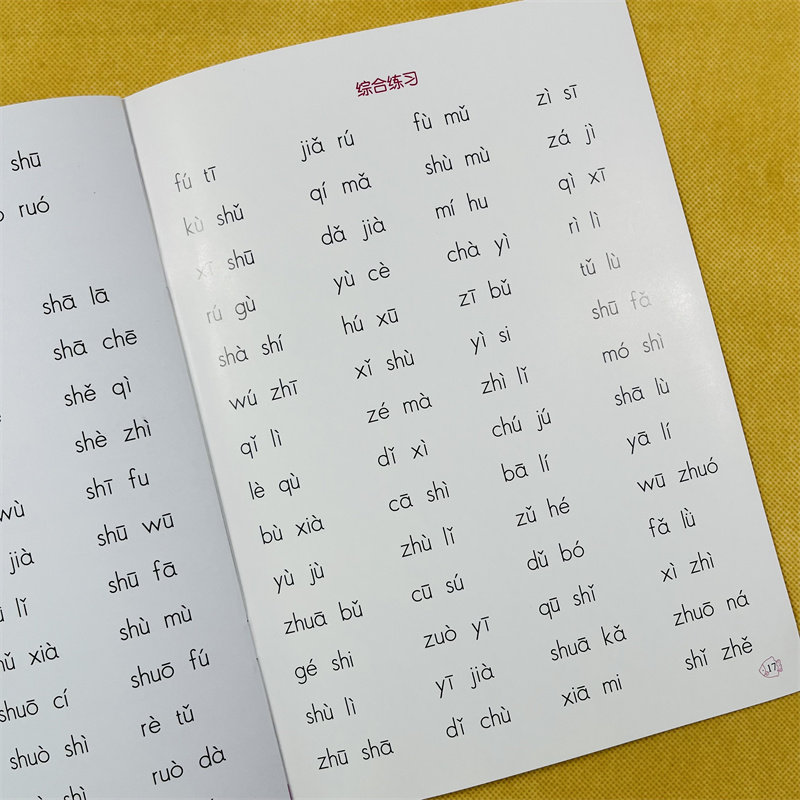 shū
ruó
shā lā
shā chē
shě qì
shè zhì
wù shī fu
jià shū wū
lǐ shū fā
xià shù mù
shuō cí shuō fú
shuò shì rè tǔ
shì ruò dà
综合练习
fú tī jiǎ rú fù mǔ zì sī
kù shǔ qí mǎ shù mù zá jì
xī shū dǎ jià mí hu qì xī
rú gù yù cè chà yì rì lì
shà shí hú xū zī bǔ tǔ lù
wú zhī xǐ shù yì si shū fǎ
qǐ lì zé mà zhì lǐ mó shì
lè qù dǐ xì chú jú shā lù
bù xià cā shì bā lí yā lí
yù jù zhù lǐ zǔ hé wū zhuó
zhuā bǔ cū sú dǔ bó fǎ lǜ
gé shi zuò yī qū shǐ xì zhì
shù lì yī jià shuā kǎ zhuō ná
zhū shā dǐ chù xiā mi shǐ zhě
17